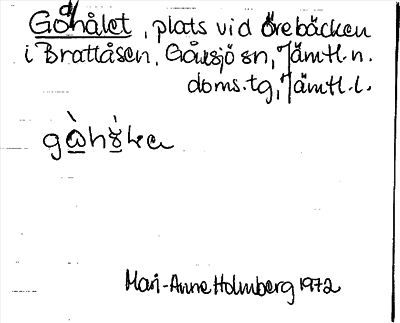 Gåhålet, plats vid Örebäcken
i Brattåsen, Gåxsjö sn, Jämtl. n.
doms. tg, Jämtl. l.
Mari-Anne Holmberg 1972